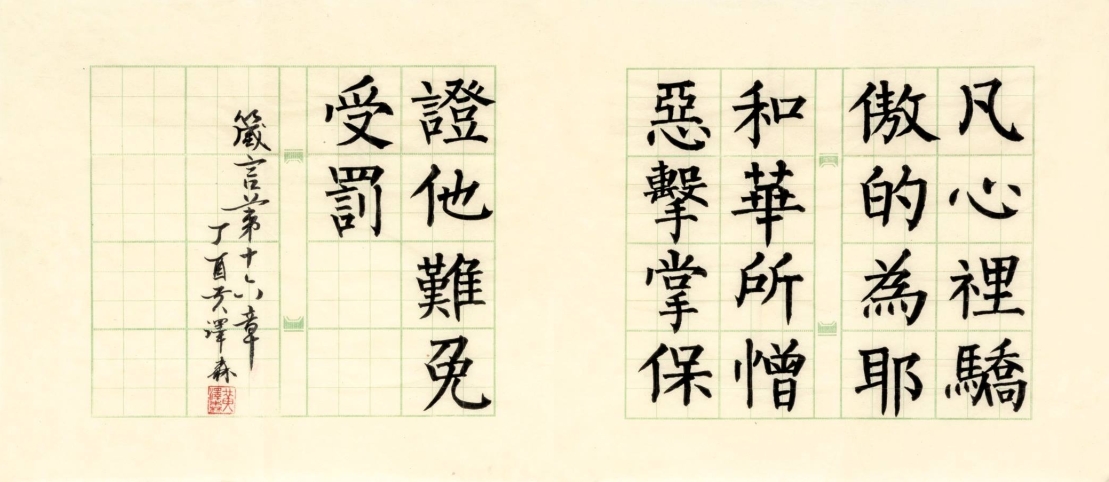 凡心裡驕
傲的為耶
和華所憎
惡擊掌保
證他難免
受罰
箴言第十六章
丁酉黃澤森
黃澤森